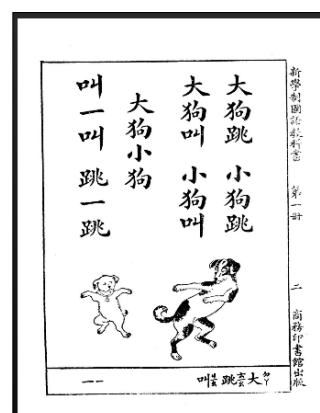 新學制國語教科書 第一冊 二 商務印書館出版
大狗跳 小狗跳
大狗叫 小狗叫
大狗小狗
叫一叫 跳一跳
大ㄉㄚ 跳ㄊㄧㄠ 叫ㄐㄧㄠ
一一